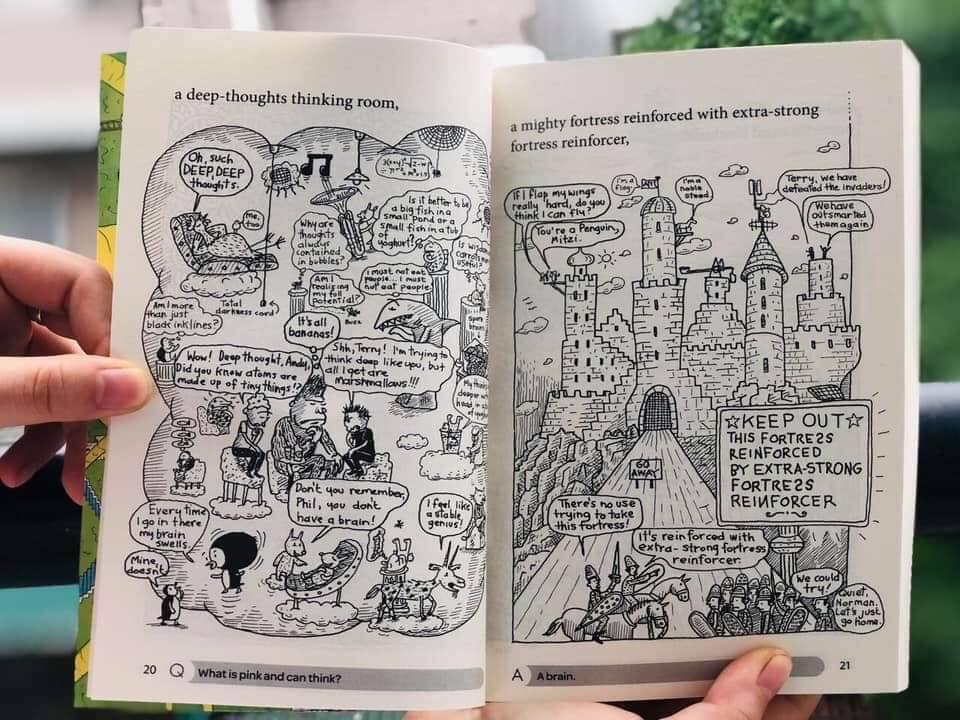 a deep-thoughts thinking room,
Oh, such
DEEP, DEEP
thoughts.
Me,
too.
Why are
thoughts
always
contained
in bubbles?
Is it better to be
a big fish in a
small pond or a
small fish in a tub
of
yoghurt?
Am I
realising
my full
potential?
I must not eat
people... I must
not eat people
Am I more
than just
black ink lines?
Total
darkness cord
It's all
bananas!
Wow! Deep thought, Andy.
Did you know atoms are
made up of tiny things!?
Shh, Terry! I'm trying to
think deep like you, but
all I get are
marshmallows!!!
Every time
I go in there
my brain
swells.
Mine
doesn't
Don't you remember,
Phil, you don't
have a brain!
I feel like
a stable
genius!
20 Q What is pink and can think?
a mighty fortress reinforced with extra-strong
fortress reinforcer,
If I flap my wings
really hard, do you
think I can fly?
You're a Penguin,
Mitzi.
I'm a
flag!
ANT
I'm a
noble
steed
Terry, we have
defeated the invaders!
We have
outsmarted
them again
☆KEEP OUT☆
THIS FORTRE2S
REINFORCED
BY EXTRA-STRONG
FORTRE2S
REINFORCER
GO
AWAY
There's no use
trying to take
this fortress!
It's reinforced with
extra-strong fortress
reinforcer.
We could
try!
Quiet,
Norman.
Let's just
go home.
A A brain. 21